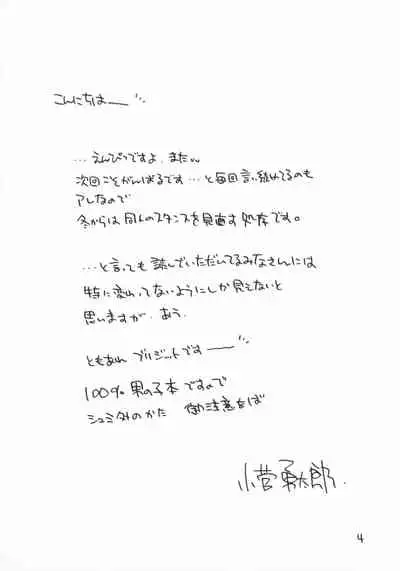 こんにちはー
…えんぴつですよ、また。
次回こそがんばるです…と毎回言い続けてるのも
アレなので
冬からは同人のスタンスを見直す処存です。
…と言っても読んでいただいてるみなさんには
特に変わってないようにしか見えないと
思いますが、あう。
ともあれ ブリジットですー
100%男の子本ですので
シュミ外のかた 御注意をば
小菅勇太郎.
4